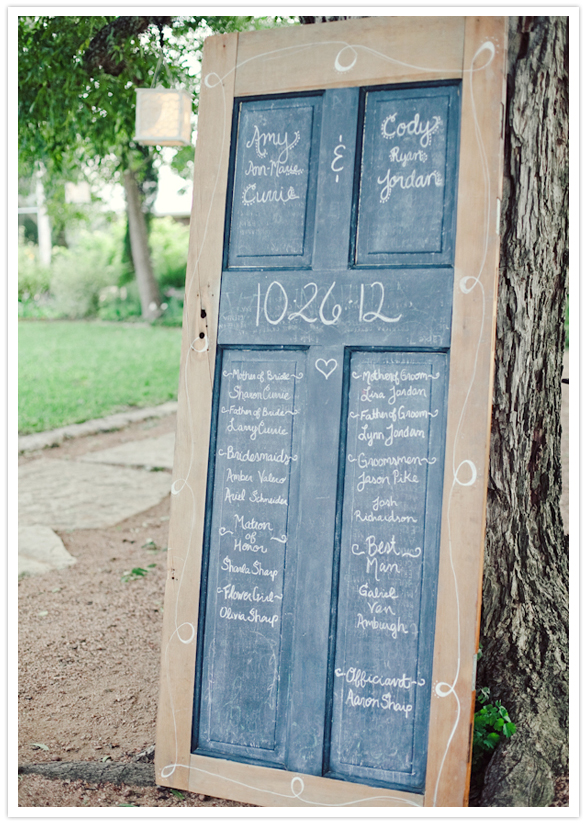 Amy
Ann-Marie
Currie
&
Cody
Ryan
Jordan
10·26·12
Mother of Bride
Sharon Currie
Father of Bride
Larry Currie
Bridesmaids
Amber Valero
Ariel Schneider
Matron
of
Honor
Sharla Sharp
Flower Girl
Olivia Sharp
Mother of Groom
Lisa Jordan
Father of Groom
Lynn Jordan
Groomsmen
Jason Pike
Josh
Richardson
Best
Man
Gabriel
Van
Amburgh
Officiant
Aaron Sharp